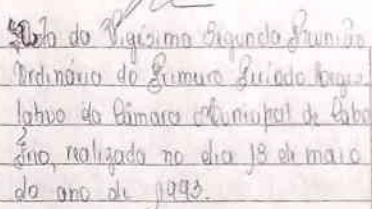 Ata da Vigésima Segunda Reunião
Ordinária do Primeiro Período Legis
lativo da Câmara Municipal de Cabo
Frio, realizada no dia 18 de maio
do ano de 1993.